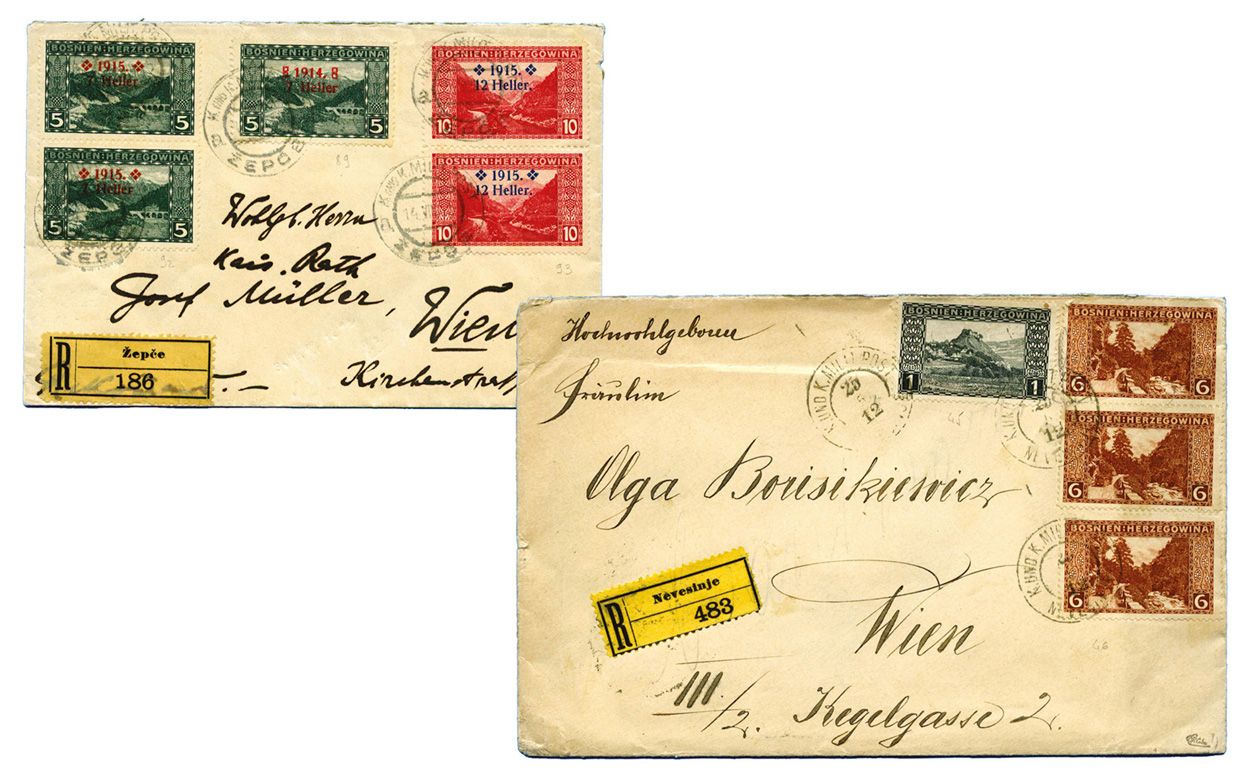 BOSNIEN:HERZEGOWINA
❖ 1915. ❖
7 Heller
5 5
BOSNIEN:HERZEGOWINA
1914.
7 Heller
5 5
BOSNIEN:HERZEGOWINA
❖ 1915. ❖
12 Heller.
10 10
BOSNIEN:HERZEGOWINA
❖ 1915. ❖
7 Heller
5 5
BOSNIEN:HERZEGOWINA
❖ 1915. ❖
12 Heller.
10 10
ŽEPČE
89
92
93
Wohlgb. Herrn
Kais. Rath
Josef Müller,
Wien
R Žepče
186
BOSNIEN:HERZEGOWINA
1 1
BOSNIEN:HERZEGOWINA
6 6
BOSNIEN:HERZEGOWINA
6 6
BOSNIEN:HERZEGOWINA
6 6
K.UND K.MILIT.POST
25
12
45
46
Hochwohlgeboren
Fräulein
Olga Borisikiewicz
Wien
III/2. Kegelgasse 2.
R Nevesinje
483